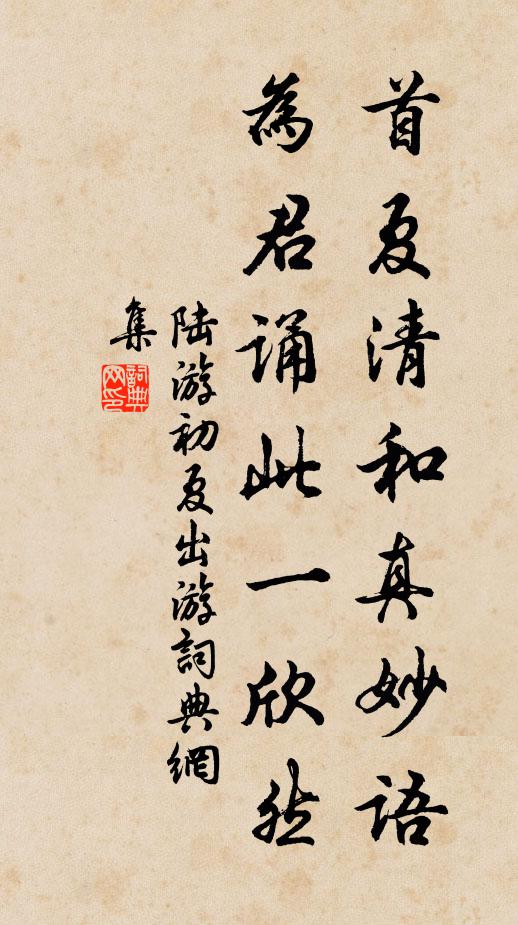 首夏清和真妙语
為君诵此一欣然
陆游初夏出游詞典網
集
詞典网印